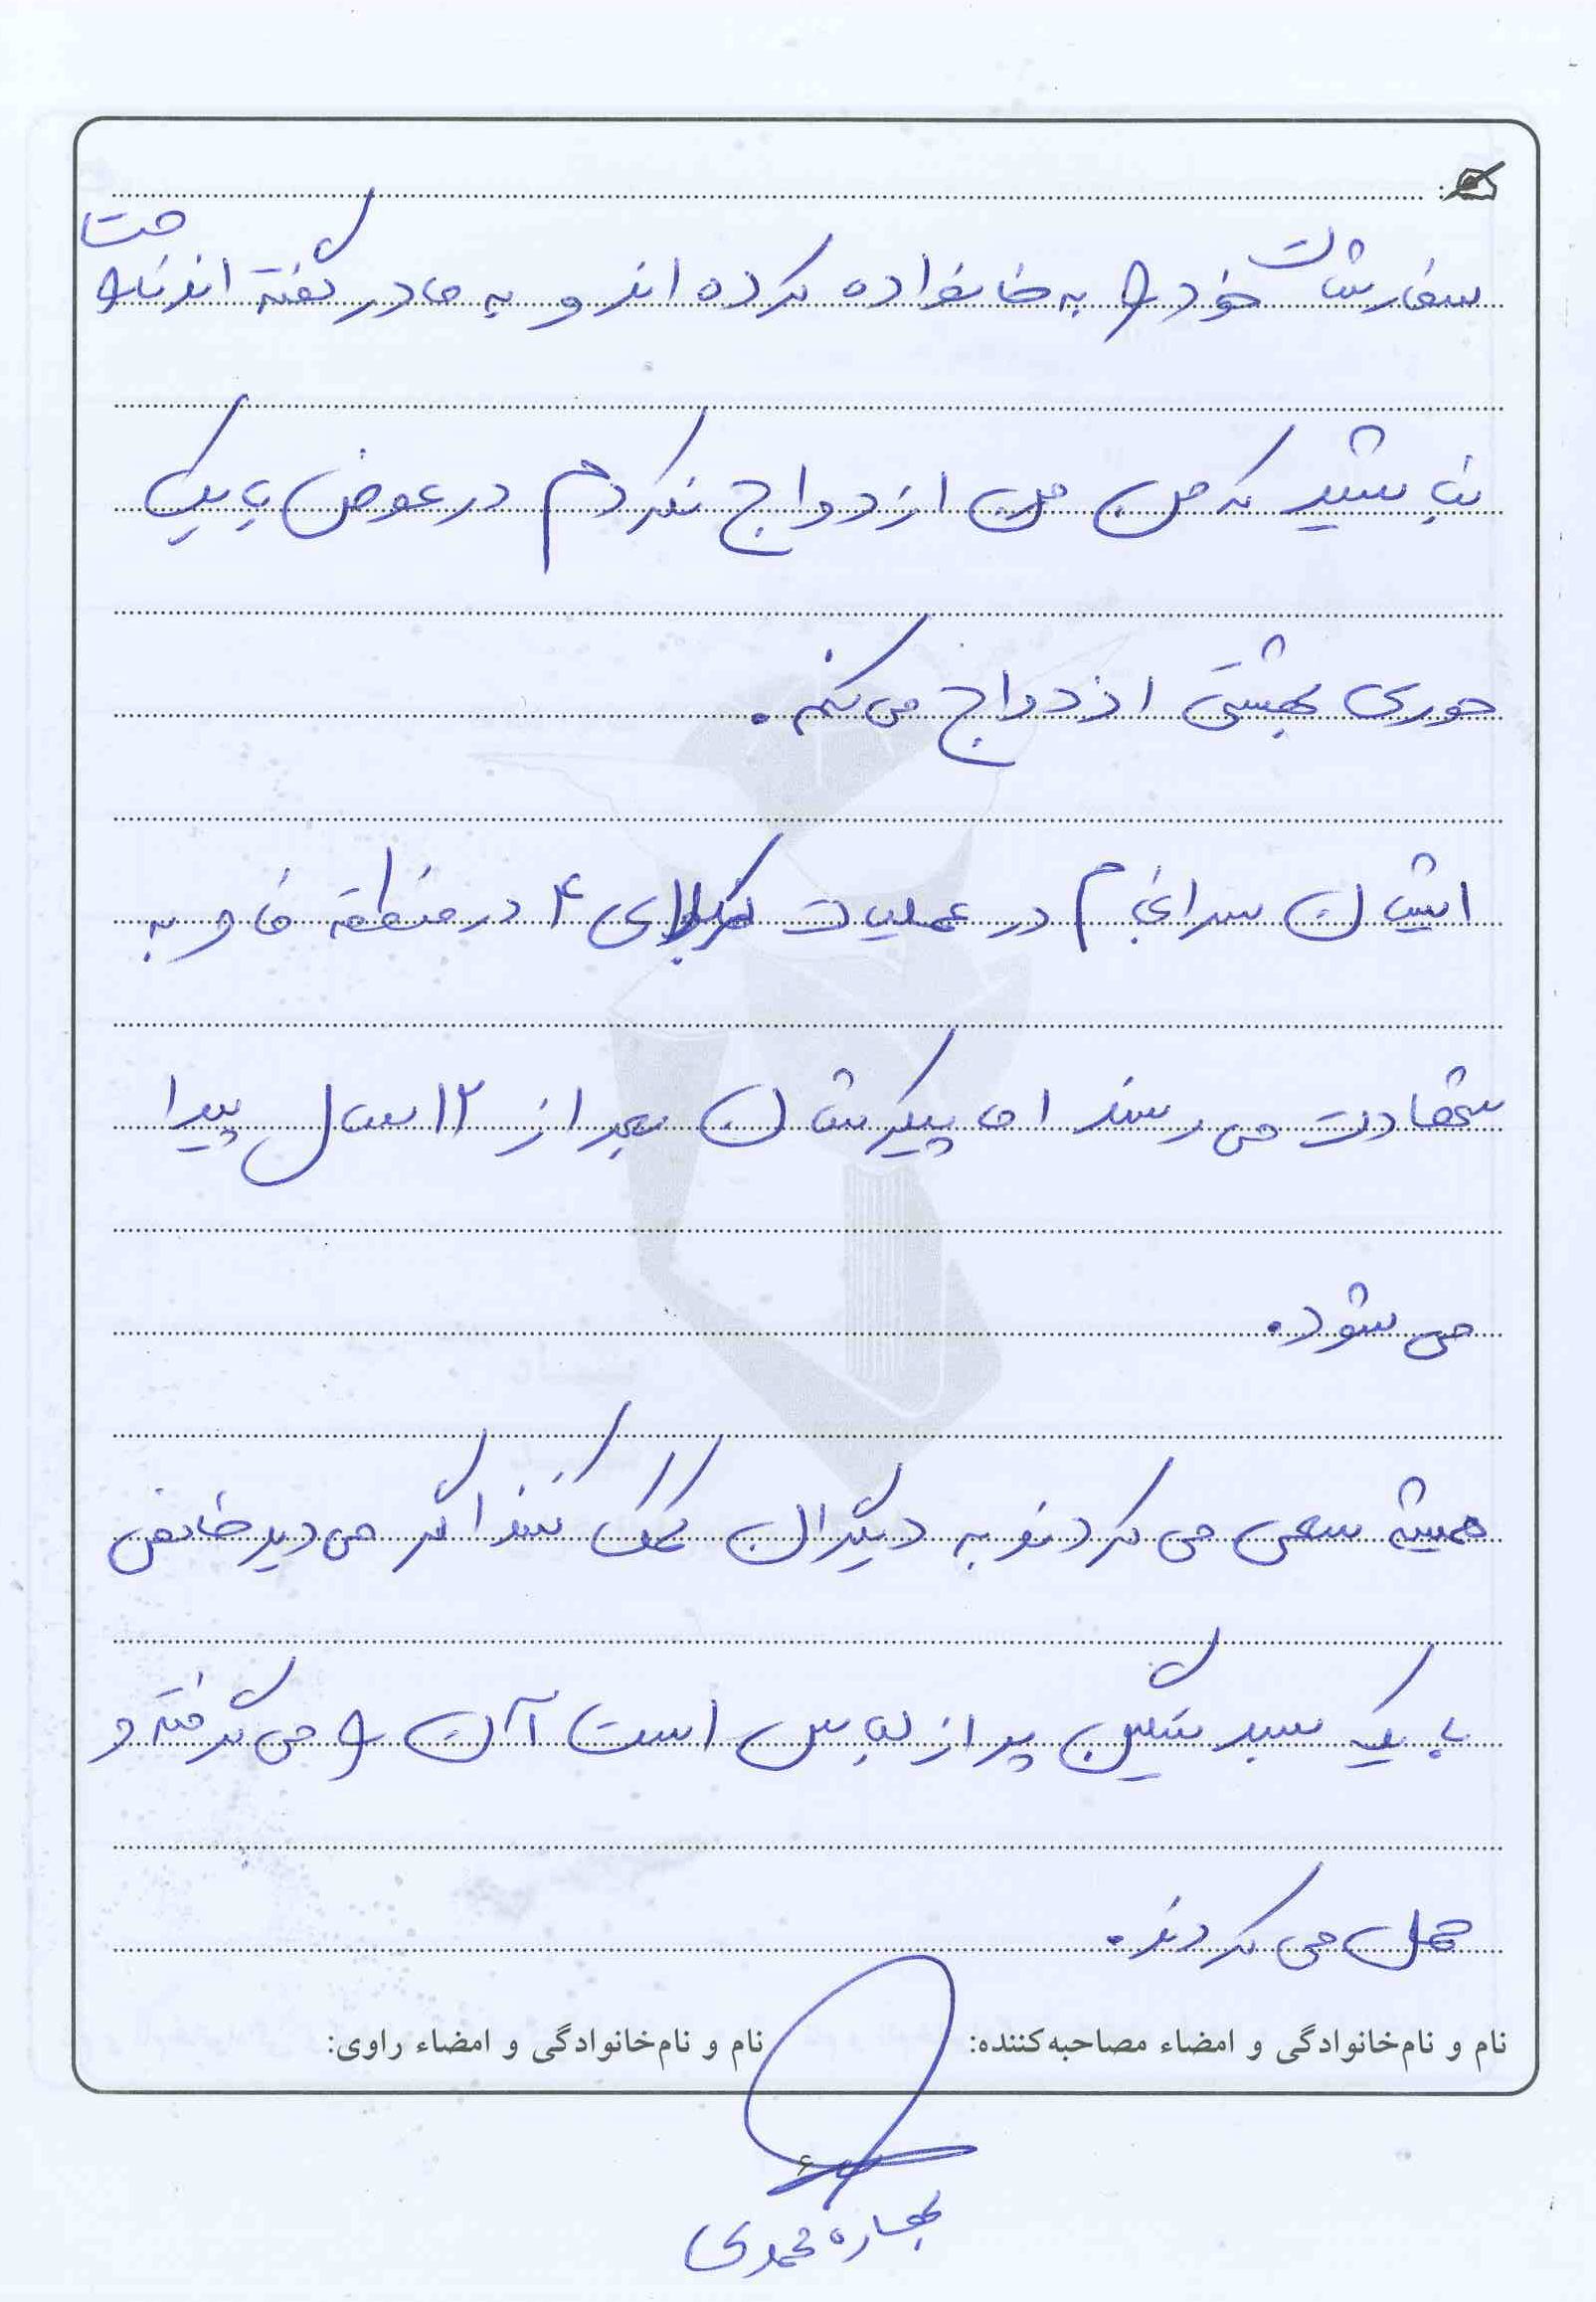 سفارشات خود را به خانواده کرده اند و به مادر گفته اند ناراحت
نباشید که من من ازدواج نکردم در عوض با یک
حوری بهشتی ازدواج می کنم.
ایشان سرانجام در عملیات کربلای ۴ در منطقه فاو به
شهادت می رسند اما پیکرشان بعد از ۱۲ سال پیدا
می شود.
همیشه سعی می کردند به دیگران کمک کنند اگر می دید خانمی
با یک سبد سنگین پر از لباس است آن را می گرفته و
حمل می کردند.
نام و نام‌خانوادگی و امضاء مصاحبه‌کننده: نام و نام‌خانوادگی و امضاء راوی:
۶
بهاره محمدی